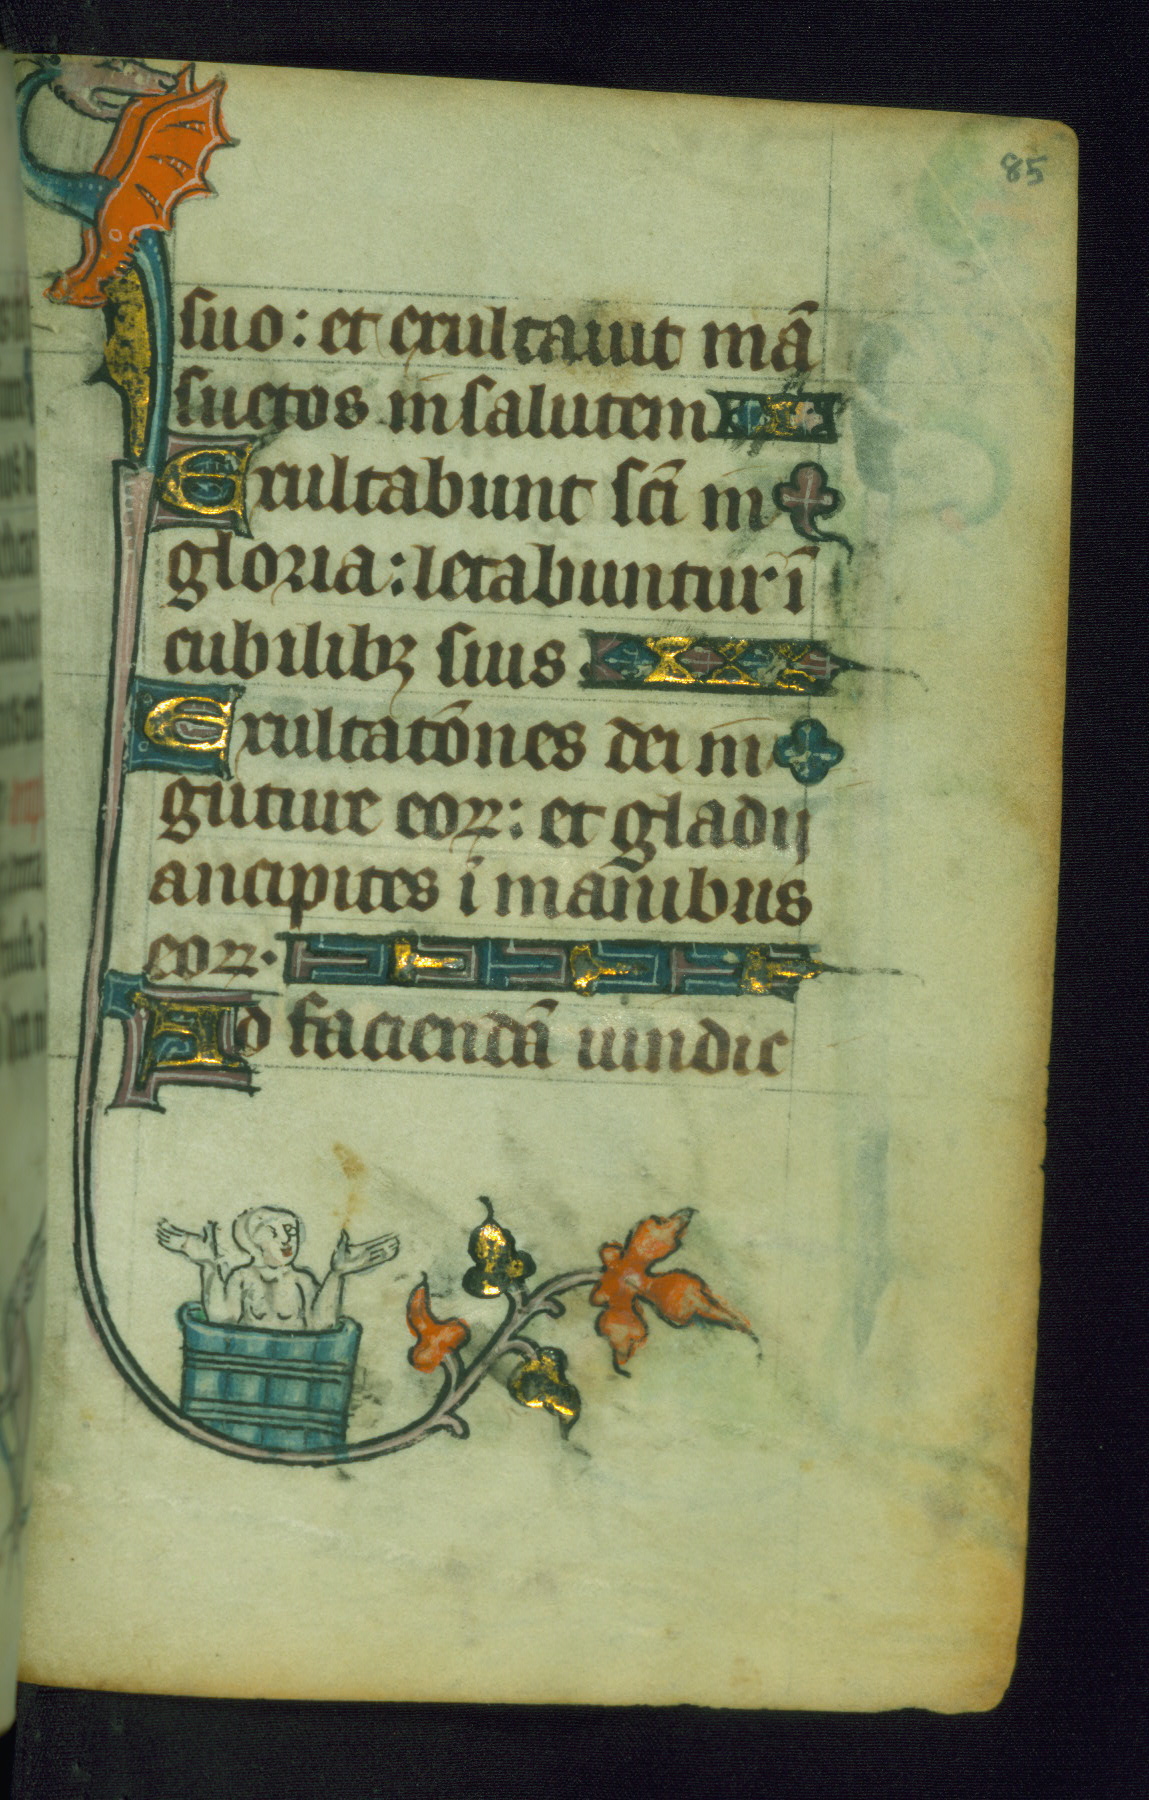 85
suo: et exultauit mā
suetos in salutem
Exultabunt sc̄i in
gloria: letabuntur ī
cubilibꝫ suis
Exultatōnes dei in
guture eoꝝ: et gladij
ancipites ī manibus
eoꝝ.
Ad faciendā uindic